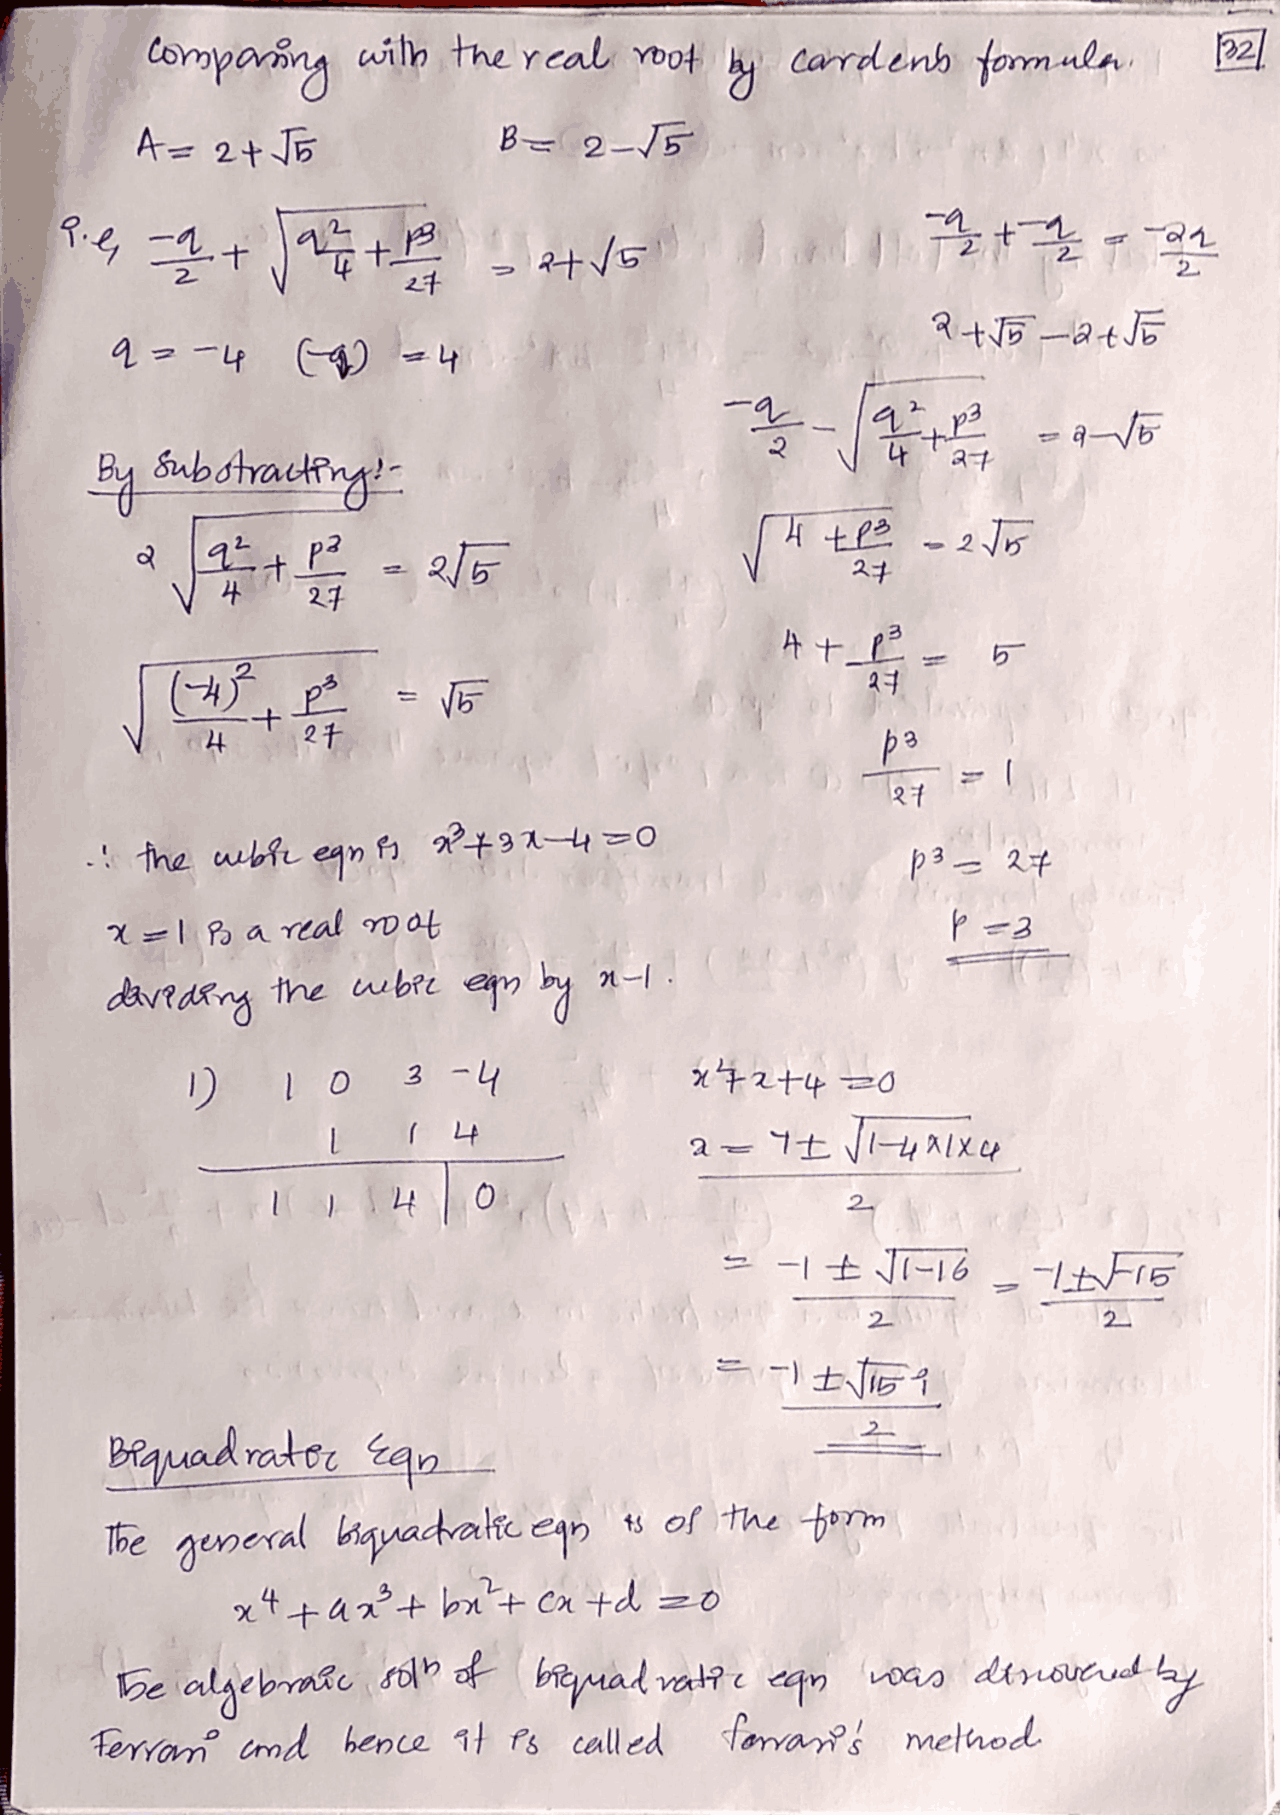 Comparing with the real root by Cardenb formula. 32
A = 2+√5 B = 2-√5
i.e, -q/2 + √(q²/4 + p³/27) = 2+√5
-q/2 + -q/2 = -2q/2
2+√5 -2+√5
q = -4 (-q) = 4
-q/2 - √(q²/4 + p³/27) = 2-√5
By Substracting:-
2 √(q²/4 + p3/27) = 2√5
√(4 + p3/27) = 2√5
√((-4)²/4 + p³/27) = √5
4 + p3/27 = 5
p3/27 = 1
∴ the cubic eqn is x³+3x-4=0
p3 = 27
x=1 is a real root
p = 3
dividing the cubic eqn by x-1.
1) 1 0 3 -4
1 1 4
1 1 4 0
x²+x+4 = 0
x = -1 ± √1-4×1×4 / 2
= -1 ± √1-16 / 2 = -1±√-15 / 2
= -1 ± √15 i / 2
Biquadratic Eqn
The general biquadratic eqn is of the form
x⁴ + ax³ + bx² + cx + d = 0
The algebraic solⁿ of biquadratic eqn was discovered by
Ferrari and hence it is called ferrari's method